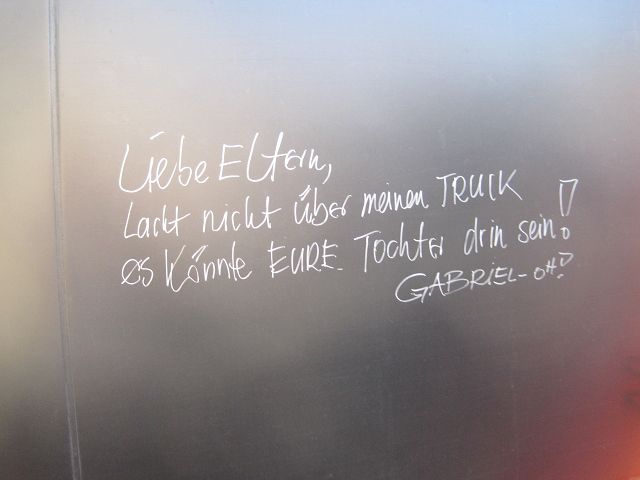 Liebe Eltern,
Lacht nicht über meinen TRUCK
es könnte EURE Tochter drin sein!
GABRIEL-OH!